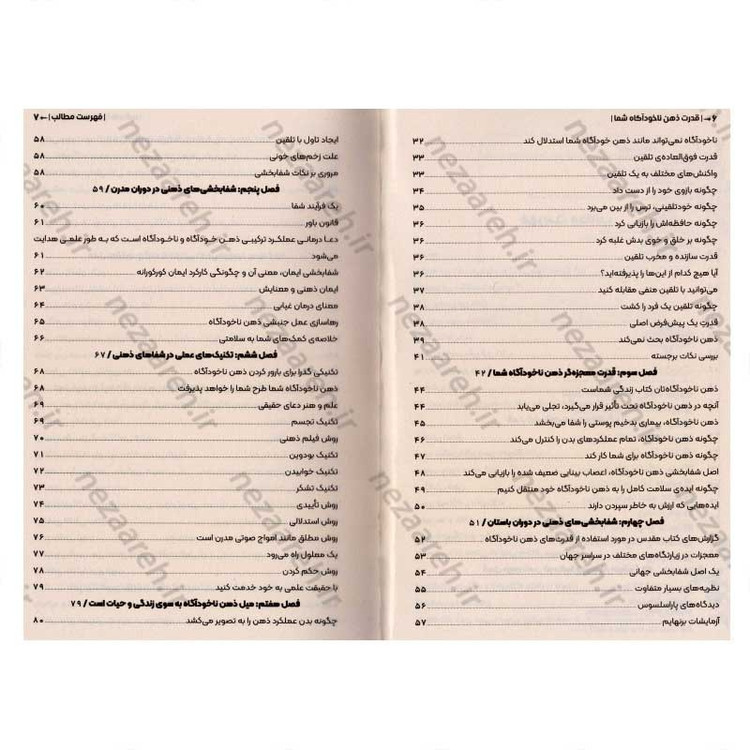 ۶ ← | قدرت ذهن ناخودآگاه شما |
ناخودآگاه نمی‌تواند مانند ذهن خودآگاه شما استدلال کند ۳۲
قدرت فوق‌العاده‌ی تلقین ۳۳
واکنش‌های مختلف به یک تلقین ۳۳
چگونه بازوی خود را از دست داد ۳۴
چگونه خودتلقینی، ترس را از بین می‌برد ۳۵
چگونه حافظه‌اش را بازیابی کرد ۳۶
چگونه بر خلق و خوی بدش غلبه کرد ۳۶
قدرت سازنده و مخرب تلقین ۳۶
آیا هیچ کدام از این‌ها را پذیرفته‌اید؟ ۳۶
می‌توانید با تلقین منفی مقابله کنید ۳۷
چگونه تلقین یک فرد را کشت ۳۸
قدرتِ یک پیش‌فرض اصلی ۳۸
ذهن ناخودآگاه بحث نمی‌کند ۳۹
بررسی نکات برجسته ۴۱
فصل سوم: قدرت معجزه‌گر ذهن ناخودآگاه شما / ۴۲
ذهن ناخودآگاه‌تان کتاب زندگی شماست ۴۴
آنچه در ذهن ناخودآگاه تحت تأثیر قرار می‌گیرد، تجلی می‌یابد ۴۴
ذهن ناخودآگاه، بیماری بدخیم پوستی را شفا می‌بخشد ۴۵
چگونه ذهن ناخودآگاه، تمام عملکردهای بدن را کنترل می‌کند ۴۶
چگونه ذهن ناخودآگاه برای شما کار کند ۴۷
اصل شفابخشی ذهن ناخودآگاه، اعصاب بینایی ضعیف شده را بازیابی می‌کند ۴۸
چگونه ایده‌ی سلامت کامل را به ذهن ناخودآگاه خود منتقل کنیم ۴۹
ایده‌هایی که ارزش به خاطر سپردن دارند ۵۰
فصل چهارم: شفابخشی‌های ذهنی در دوران باستان / ۵۱
گزارش‌های کتاب مقدس در مورد استفاده از قدرت‌های ذهن ناخودآگاه ۵۲
معجزات در زیارتگاه‌های مختلف در سراسر جهان ۵۳
یک اصل شفابخشی جهانی ۵۴
نظریه‌های بسیار متفاوت ۵۵
دیدگاه‌های پاراسلسوس ۵۶
آزمایشات برنهایم ۵۷
| فهرست مطالب | → ۷
ایجاد تاول با تلقین ۵۸
علت زخم‌های خونی ۵۸
مروری بر نکات شفابخشی ۵۸
فصل پنجم: شفابخشی‌های ذهنی در دوران مدرن / ۵۹
یک فرآیند شفا ۶۰
قانون باور ۶۱
دعا درمانی عملکرد ترکیبی ذهن خودآگاه و ناخودآگاه است که به طور علمی هدایت
می‌شود ۶۱
شفابخشی ایمان، معنی آن و چگونگی کارکرد ایمان کورکورانه ۶۲
ایمان ذهنی و معنایش ۶۳
معنای درمان غیابی ۶۴
رهاسازی عمل جنبشی ذهن ناخودآگاه ۶۵
خلاصه‌ی کمک‌های شما به سلامتی ۶۶
فصل ششم: تکنیک‌های عملی در شفاهای ذهنی / ۶۷
تکنیکی گذرا برای بارور کردن ذهن ناخودآگاه ۶۸
ذهن ناخودآگاه شما طرح شما را خواهد پذیرفت ۶۸
علم و هنر دعای حقیقی ۶۹
تکنیک تجسم ۶۹
روش فیلم ذهنی ۷۰
تکنیک بودوین ۷۱
تکنیک خوابیدن ۷۲
تکنیک تشکر ۷۳
روش تأییدی ۷۴
روش استدلالی ۷۵
روش مطلق مانند امواج صوتی مدرن است ۷۶
یک معلول راه می‌رود ۷۷
روش حکم کردن ۷۸
با حقیقت علمی به خود خدمت کنید ۷۹
فصل هفتم: میل ذهن ناخودآگاه به سوی زندگی و حیات است / ۷۹
چگونه بدن عملکرد ذهن را به تصویر می‌کشد ۸۰
nezaareh.ir